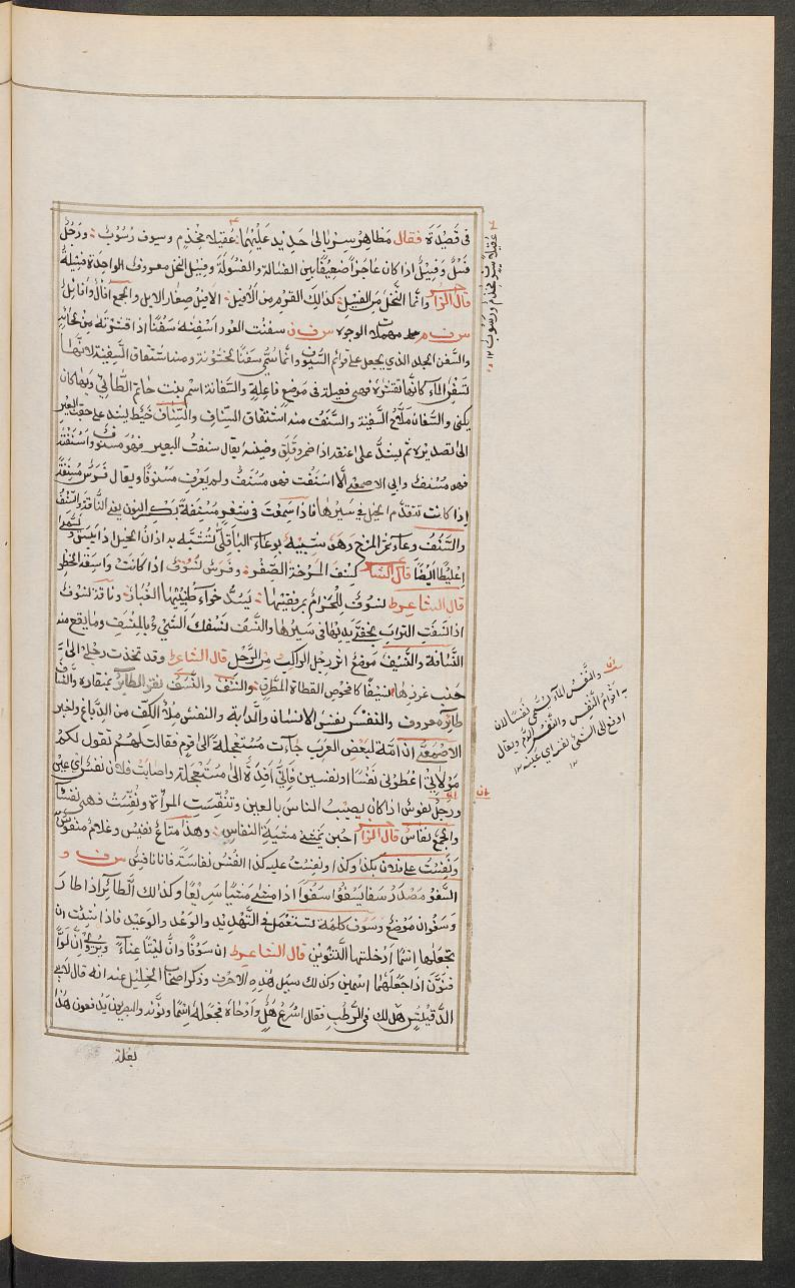 فى قصيدة فقال مظاهر سربالى حديد عليهما عقيلا مخذم وسيوف رسوب ورجل
فسل وفسيل اذا كان عاجزا ضعيفا بين الفسالة والفسولة وفسيل النخل معروف الواحدة فسيلة
قال الراجز وانما النخل من الفسيل كذالك القرم من الافيل الافيل صغار الابل والجمع افال وافايل
س ف ن مهملات الوجوه س ف ن سفنت العود اسفنه سفنا اذا قشرته
والسفن الجلد الذي يجعل على قوائم السيوف وانما سمى سفنا لخشونته ومنه اشتقاق السفينة لانها
تسفن الماء كانها تقشره فهى فعيلة فى موضع فاعلة والسفانة اسم بنت حاتم الطائى وبها كان
يكنى والسفان ملاح السفينة والسنف منه اشتقاق السناف والسناف خيط يشد على حقب البعير
الى تصديره ثم يشد على عنقه اذا ضمر وقلق وضينه يقال سنفت البعير فهو مسنوف واسنفته
فهو مسنف وابى الاصمعى الا اسنفت فهو مسنف ولم يعرف مسنوفا ويقال فرس مسنفة
اذا كانت تتقدم الخيل فى سيرها فاذا سمعت فى شعر مسنفة بكسر النون فهى الناقة
والسنف وعاء ثمر المرخ وهو شبيه بوعاء الباقلى تشبه به اذان الخيل
اعليطا ايضا قال الشاعر كسنف المرخة الصفر وفرس نسوف اذا كانت واسعة الخطو
قال الشاعر نسوف للحزام بمرفقيها يسد خواء طبييها الغبار وناقة نسوف
اذا نسفت التراب بخفى يديها فى سيرها والنسف نسفك الشىء بالمنسف وما يقع منه
النسافة والنسيف موضع اثر رجل الراكب من الرجل قال الشاعر وقد تخذت رجلى الى
جنب غرزها نسيفا كافحوص القطاة المطرق والنسف نقر الطائر بمنقاره والنساف
طائر معروف والنفس نفس الانسان والدابة والنفس ملأ الكف من الدباغ واخبر
الاصمعى ان امة لبعض العرب جاءت مستعجلة الى قوم فقالت لهم تقول لكم
مولاتى اعطونى نفسا او نفسين فانى افدة اى مستعجلة واصابت فلان نفس اى عين
ورجل نفوس اذا كان يصيب الناس بالعين وتنفست المرأة ونفست فهى نفساء
والجمع نفاس قال الراجز احبن يمشى مشية النفاس وهذا متاع نفيس وغلام منفوس
ونفست على فلان بكذا وكذا ونفست عليه كذا النفس نفاسة فانا نافس س ف و
السفو مصدر سفا يسفوا سفوا اذا مشى مشيا سريعا وكذالك الطائر اذا طار
وسفوان موضع وسوف كلمة تستعمل فى التهديد والوعد والوعيد فاذا شئت ان
تجعلها اسما ادخلتها التنوين قال الشاعر ان سوفا وان ليتا عناء ويروى ان لوا
فنون اذا جعلهما اسمين وكذلك سبيل هذه الاحرف وذكر اصحاب الخليل عنه انه قال لابى
الدقيش هل لك فى الرطب فقال اسرع هل واوحاه فجعله اسما ونونه والبصريون يدفعون هذا
بعلة
عقيلا سيوف مخذم ورسوب ١٢
والنفس الماء سمى نفسا لان
به قوام النفس والنفس الدم ويقال
١٢